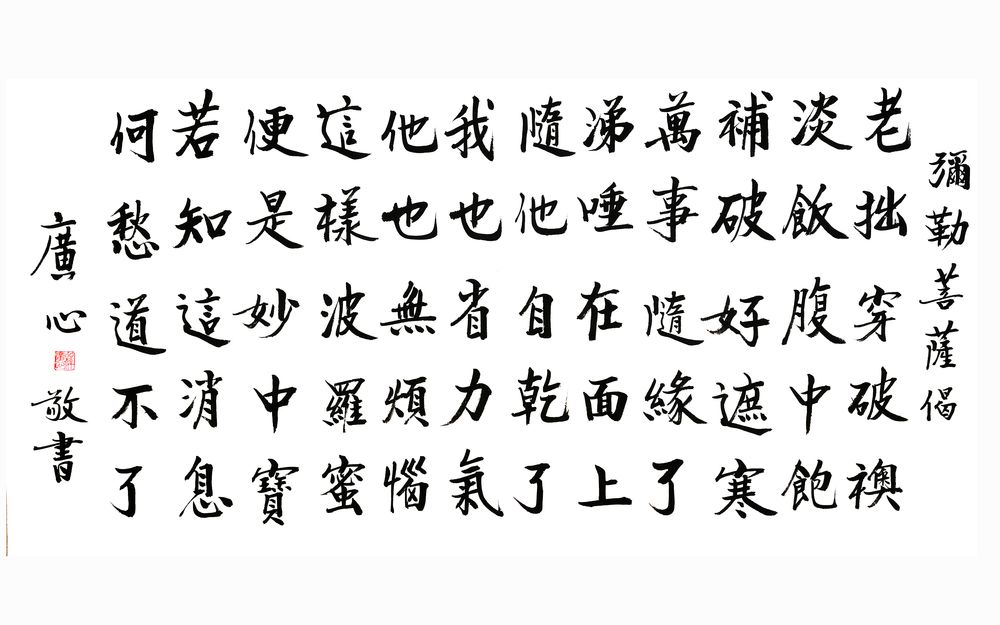 彌勒菩薩偈
老拙穿破襖
淡飯腹中飽
補破好遮寒
萬事隨緣了
涕唾在面上
隨他自乾了
我也省力氣
他也無煩惱
這樣波羅蜜
便是妙中寶
若知這消息
何愁道不了
廣心
敬書